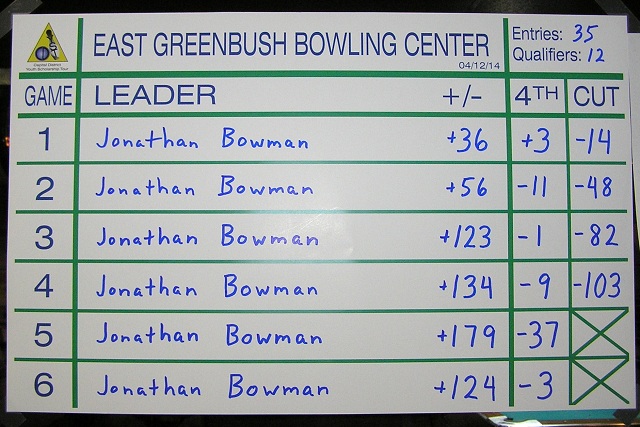 EAST GREENBUSH BOWLING CENTER
04/12/14
Entries: 35
Qualifiers: 12
Capital District
Youth Scholarship Tour
GAME LEADER +/- 4TH CUT
1 Jonathan Bowman +36 +3 -14
2 Jonathan Bowman +56 -11 -48
3 Jonathan Bowman +123 -1 -82
4 Jonathan Bowman +134 -9 -103
5 Jonathan Bowman +179 -37
6 Jonathan Bowman +124 -3